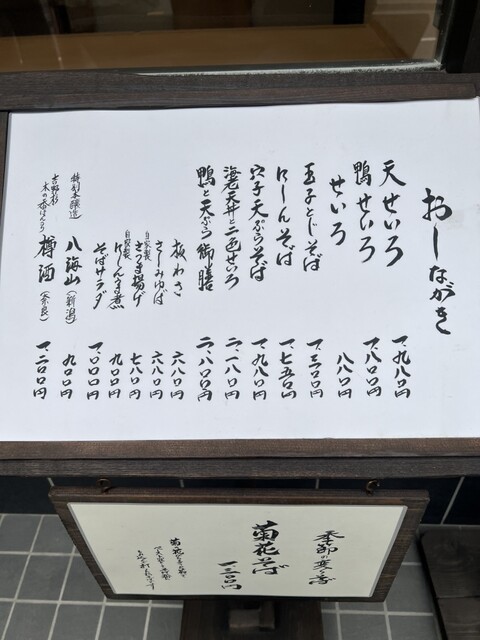 おしながき
天せいろ 一、九八〇円
鴨せいろ 一、八〇〇円
せいろ 八八〇円
玉子とじそば 一、三〇〇円
にしんそば 一、七五〇円
穴子天ぷらそば 一、九八〇円
海老天丼と二色せいろ 二、一八〇円
鴨と天ぷら御膳 二、八〇〇円
板わさ 六八〇円
さしみゆば 六八〇円
自家製 さつま揚げ 七八〇円
自家製 にしん煮 九〇〇円
そばサラダ 一、〇〇〇円
特別本醸造 八海山（新潟） 九〇〇円
吉野杉 木の香ほんのり 樽酒（奈良） 一、二〇〇円
季節の変り
菊花そば
一、三〇〇円